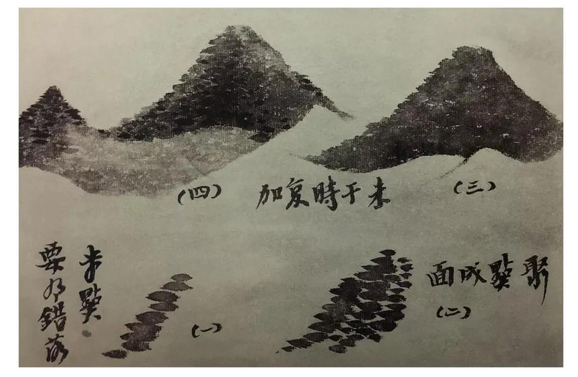 (三)
未干時复加
(四)
聚點成面
(二)
(一)
米點
要有錯落